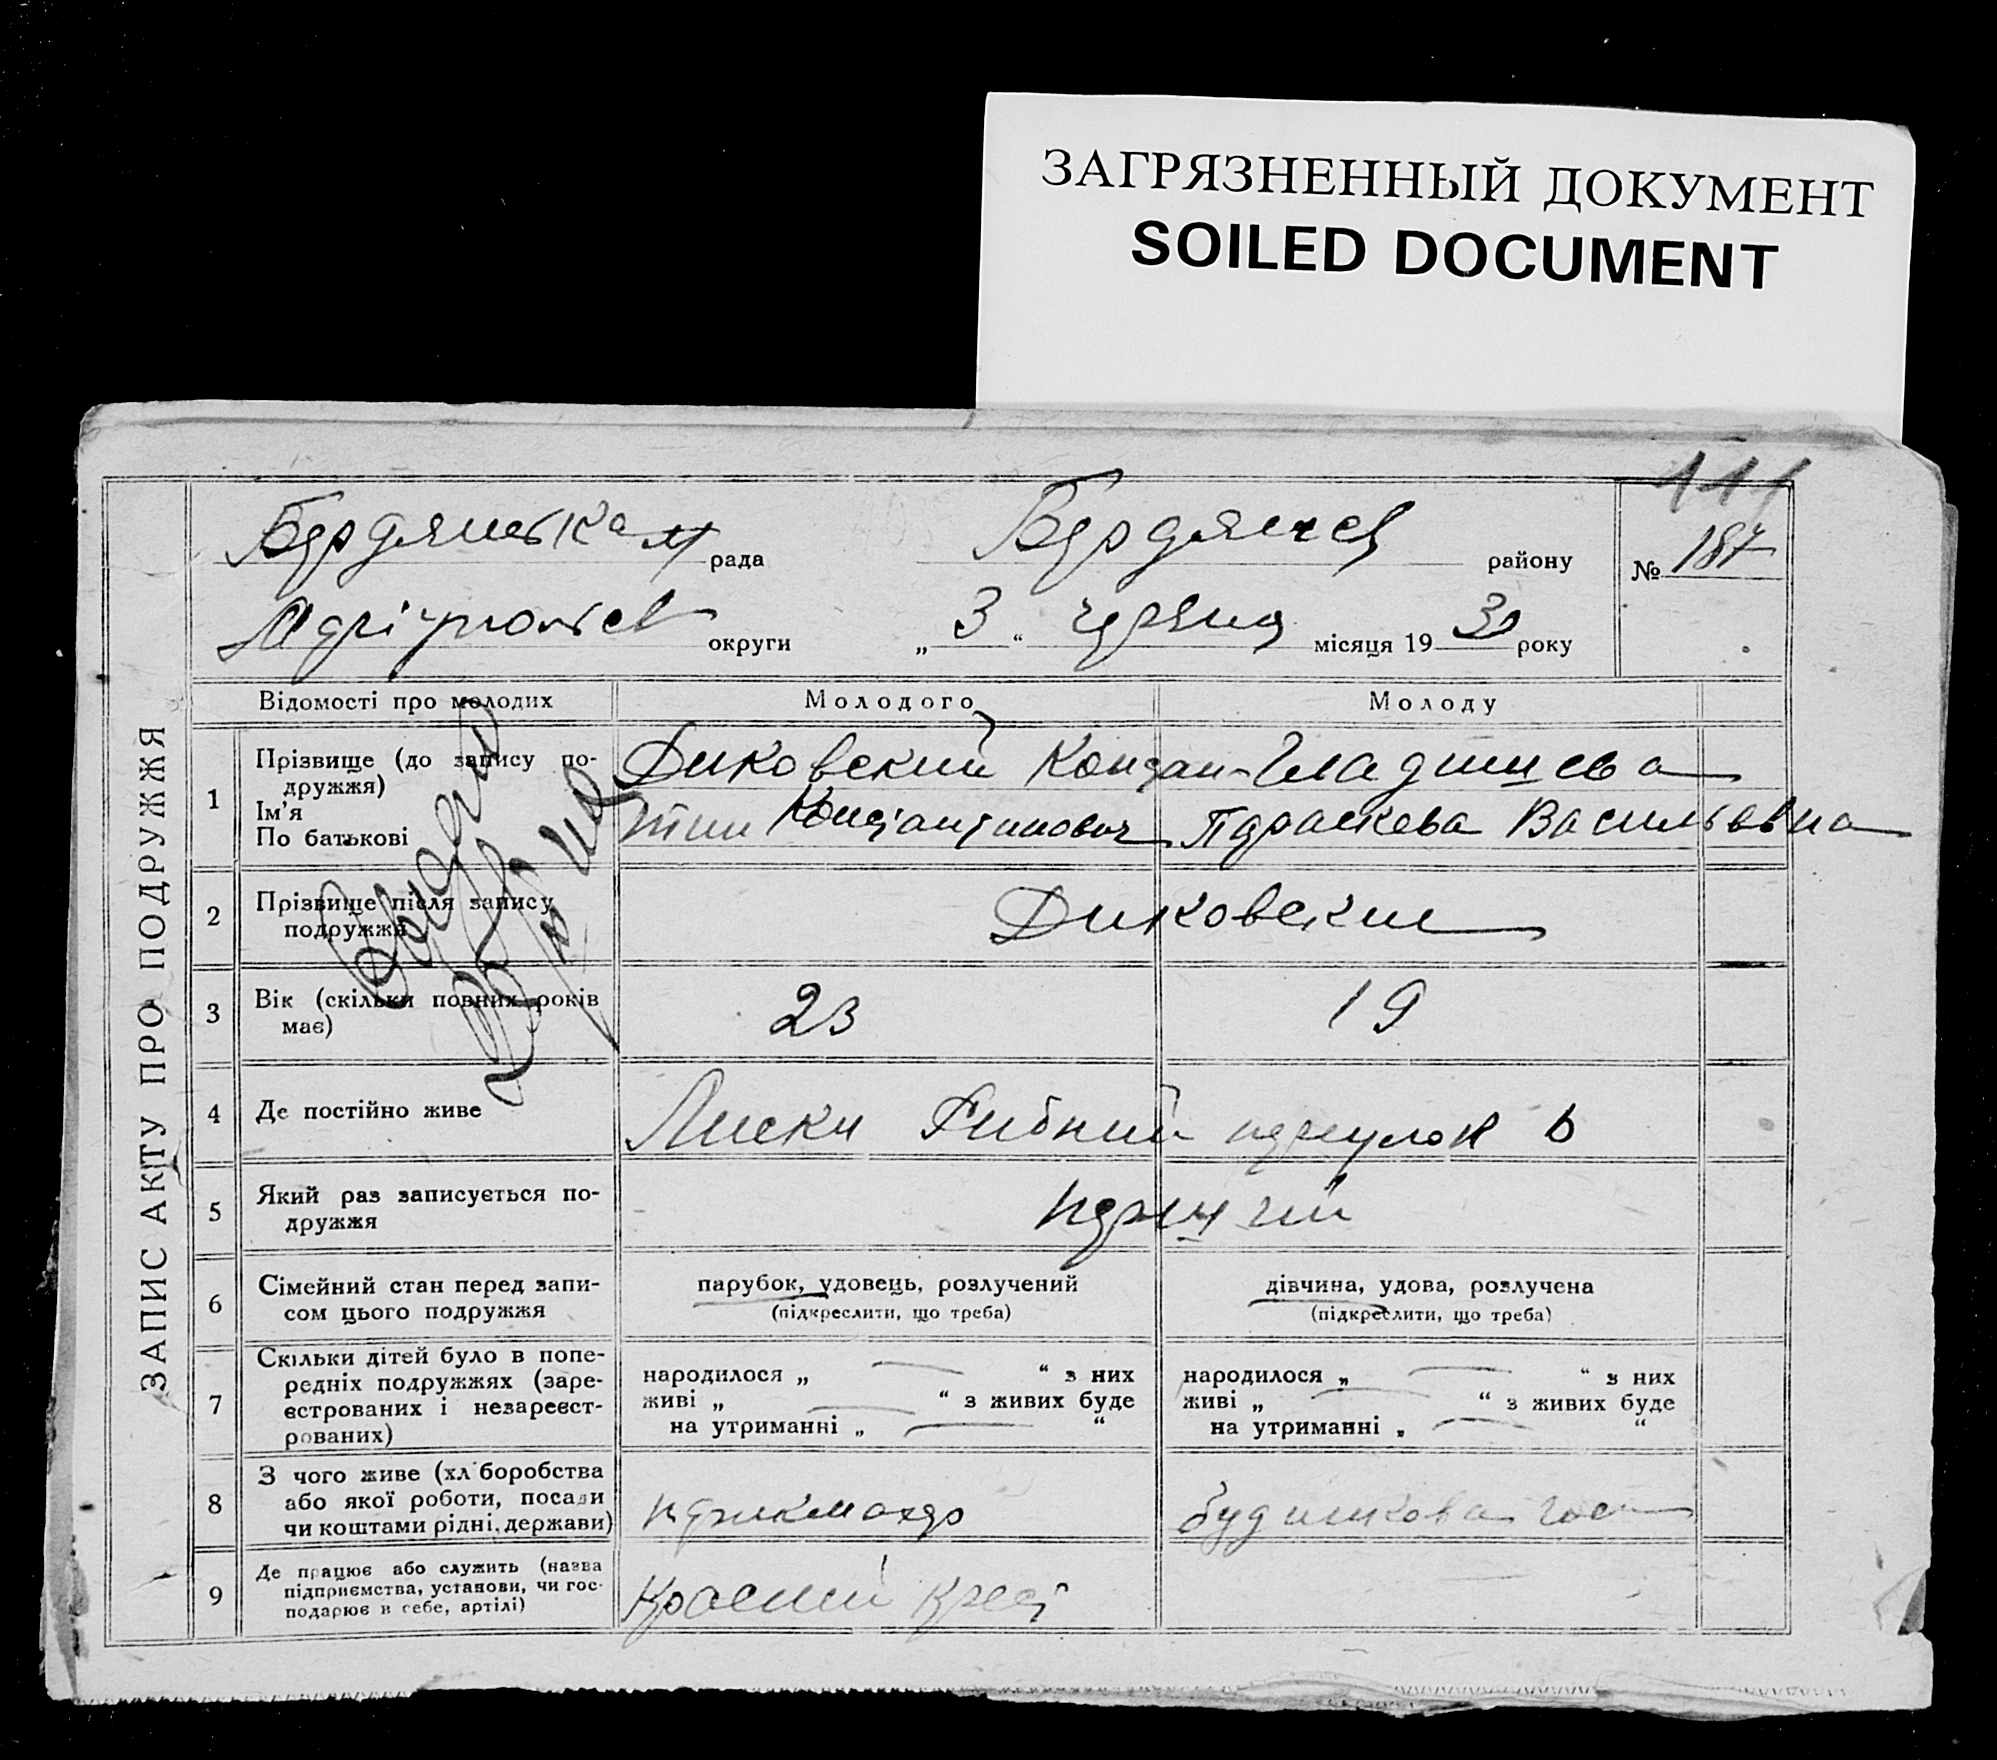 ЗАГРЯЗНЕННЫЙ ДОКУМЕНТ
SOILED DOCUMENT
111
Бердянська м рада Бердянськ району № 187
Маріупольськ округи „3“ червня місяця 1930 року
ЗАПИС АКТУ ПРО ПОДРУЖЖЯ
Відомості про молодих Молодого Молоду
1 Прізвище (до запису по-
дружжя)
Ім'я
По батькові
Диковский Констан-
тин Константинович
Гладишева
Параскева Васильевна
2 Прізвище після запису
подружжя
Диковские
3 Вік (скільки повних років
має)
23 19
4 Де постійно живе
Лиски Рибний переулок 6
5 Який раз записується по-
дружжя
6 Сімейний стан перед запи-
сом цього подружжя
парубок, удовець, розлучений
(підкреслити, що треба)
дівчина, удова, розлучена
(підкреслити, що треба)
7 Скільки дітей було в попе-
редніх подружжях (заре-
єстрованих і незареєст-
рованих)
народилося „ — “ з них
живі „ — “ з живих буде
на утриманні „ — “
народилося „ — “ з них
живі „ — “ з живих буде
на утриманні „ — “
8 З чого живе (хліборобства
або якої роботи, посади
чи коштами рідні, держави)
перикмахер
будинкова гос
9 Де працює або служить (назва
підприємства, установи, чи гос-
подарює в себе, артілі)
Красний Крест